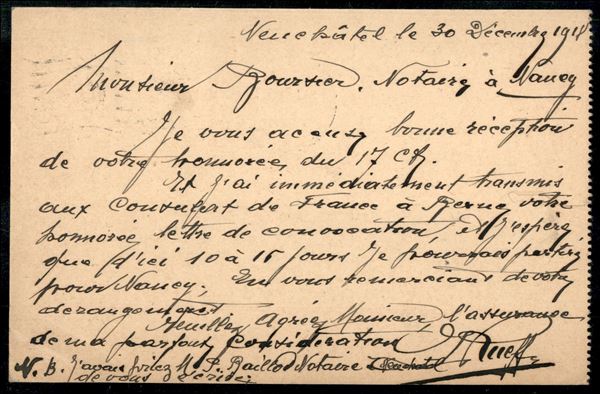 Neuchâtel le 30 Décembre 1918
Monsieur Boursier, Notaire, à Nancy
Je vous accuse bonne réception
de votre honnorée, du 17 Ct.
Et j'ai immédiatement transmis
aux Consulat de France à Berne votre
honnorée lettre de convocation et j'espère
que d'ici 10 à 15 jours je pourrais partir
pour Nancy, En vous remerciant de votre
derangement
Veuillez Agrée Monsieur l'assurance
de ma parfaite Considération
Rueff
N. B. j'avais priez Mr P. Baillod Notaire Neuchatel
de vous décrire